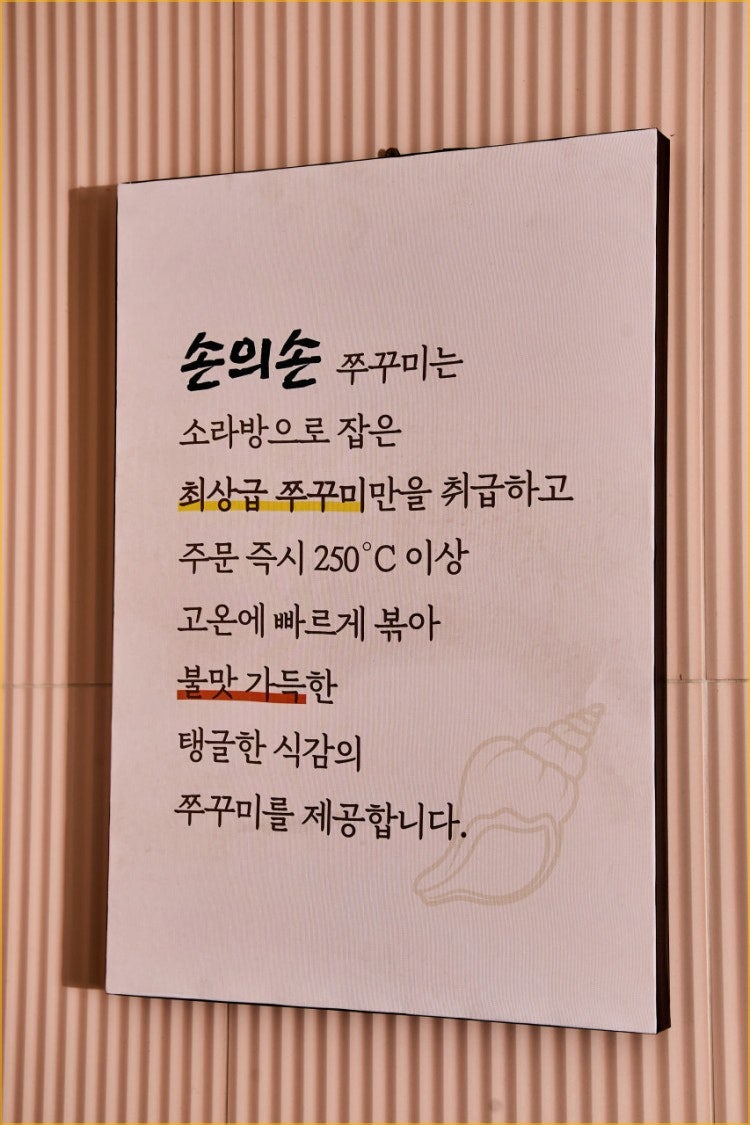 손의손 쭈꾸미는
소라방으로 잡은
최상급 쭈꾸미만을 취급하고
주문 즉시 250°C 이상
고온에 빠르게 볶아
불맛 가득한
탱글한 식감의
쭈꾸미를 제공합니다.